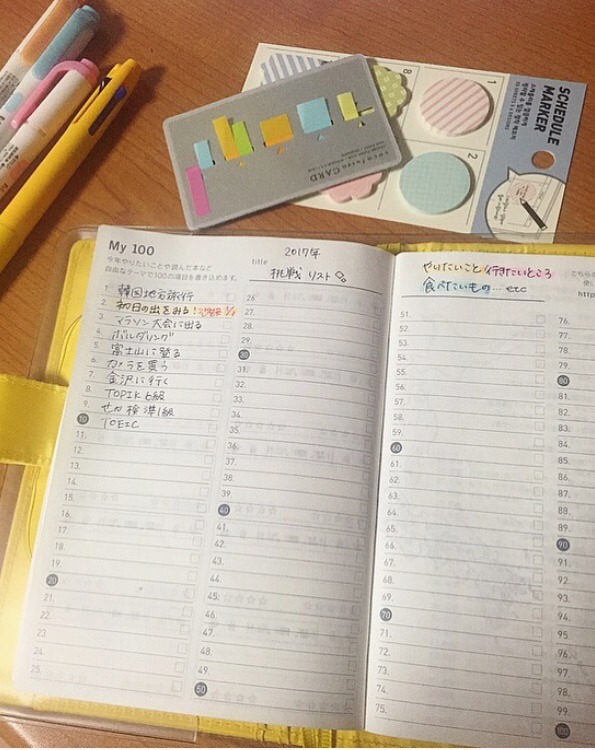 SCHEDULE
MARKER
8
1
2
My 100
今年やりたいことや読んだ本など
自由なテーマで100の項目を書き込めます。
title
2017年
挑戦リスト
やりたいこと/行きたいところ
食べたいもの…etc
こちら
1. 韓国地方旅行
2. 初日の出をみる!
3. マラソン大会に出る
4. ボルダリング
5. 富士山に登る
6. カメラを買う
7. 金沢に行く
8. TOPIK 6級
9. せか検 準1級
10 TOEIC
11.
12.
13.
14.
15.
16.
17.
18.
19.
20
21.
22.
23.
24.
25.
26.
27.
28.
29.
30
31.
32.
33.
34.
35.
36.
37.
38.
39.
40
41.
42.
43.
44.
45.
46.
47.
48.
49.
50
51.
52.
53.
54.
55.
56.
57.
58.
59.
60
61.
62.
63.
64.
65.
66.
67.
68.
69.
70
71.
72.
73.
74.
75.
76.
77.
78.
79.
80
81.
82.
83.
84.
85.
86.
87.
88.
89.
90
91.
92.
93.
94.
95.
96.
97.
98.
99.
100